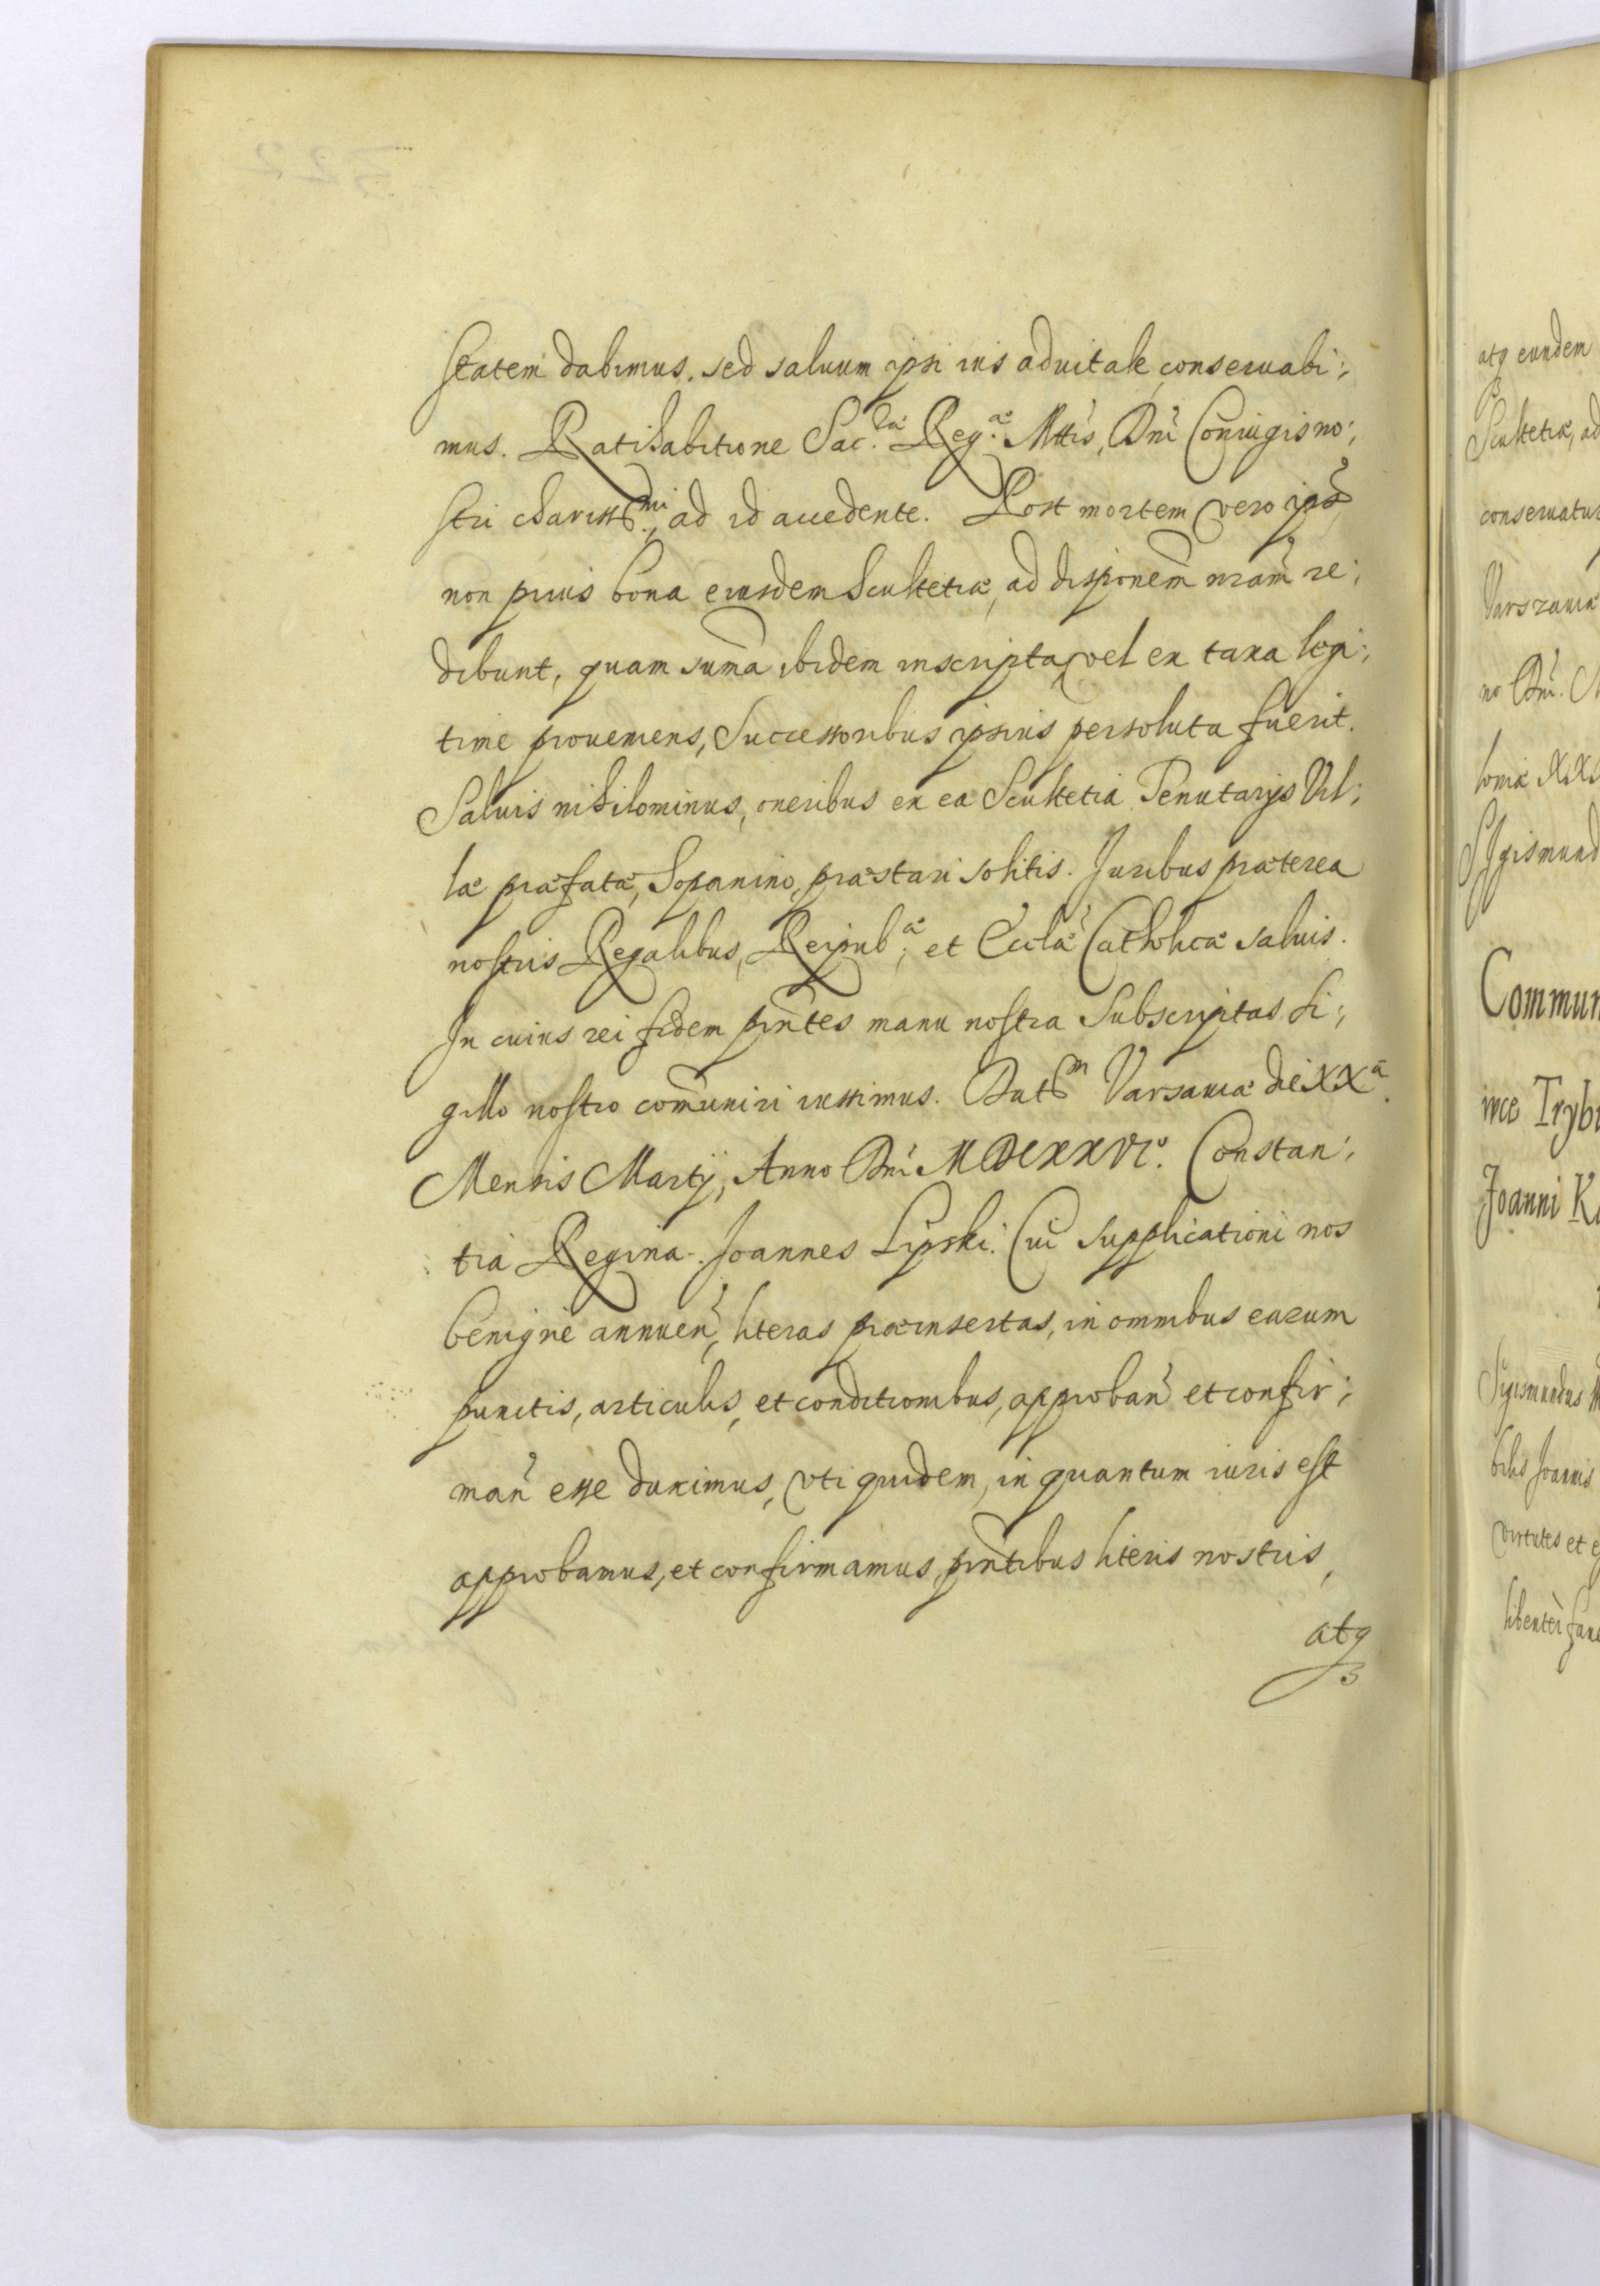 statem dabimus, sed saluum ipsi ius aduitale, conseruabi:,
mus. Ratihabitione Sac.ræ Reg.æ Mttis, Dni Coniugis no:,
stri chariss.mi, ad id accedente. Post mortem vero ips̃
non prius bona eiusdem Scultetiæ, ad disponem̃ nram̃ re:,
dibunt, quam sum̃a ibidem inscripta, vel ex taxa legi:,
time proueniens, Successoribus ipsius persoluta fuerit.
Saluis nihilominus, oneribus ex ea Scultetia Tenutarijs Vil:,
læ præfatæ, Sopanino, præstari solitis. Juribus præterea
nostris Regalibus, Reipub.æ, et Eccl̃æ Catholicæ saluis.
In cuius rei fidem pñtes manu nostra Subscriptas Si:,
gillo nostro com̃uniri iussimus. Dat̃m Varsauiæ die XXa.
Mensis Martij, Anno Dni MDCXXVIo. Constan:,
tia Regina. Joannes Lipski. Cui supplicationi nos
benigne annueñ, literas præinsertas, in omnibus earum
punctis, articulis, et conditionibus, approbañ et confir:,
mañ esse duximus, vti quidem, in quantum iuris est
approbamus, et confirmamus, pñtibus literis nostris,
atq3
atq3 eundem
Scultetiæ, ad
conseruatur
Varszauiæ
no Dni. M
loniæ XXX
Sigismund
Commun
Joanni K
Sigismundus
bilis Joannis
virtutes et e
libenter